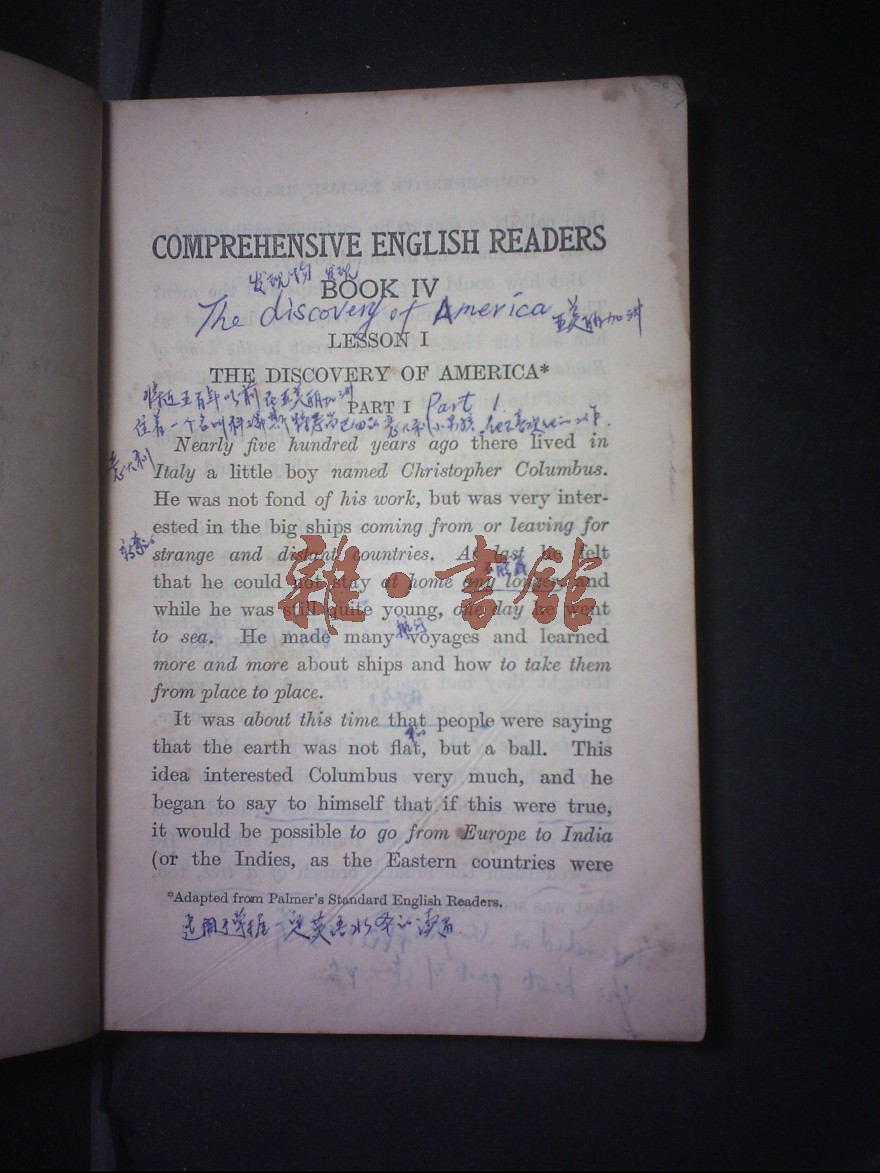 COMPREHENSIVE ENGLISH READERS
发现 发现
BOOK IV
The discovery of America
LESSON I
THE DISCOVERY OF AMERICA*
将近五百年以前在
PART I Part 1
住着一个名叫
意大利
Nearly five hundred years ago there lived in
Italy a little boy named Christopher Columbus.
He was not fond of his work, but was very inter-
ested in the big ships coming from or leaving for
strange and distant countries. At last he felt
that he could not stay at home any longer, and
while he was still quite young, one day he went
航行
to sea. He made many voyages and learned
more and more about ships and how to take them
from place to place.
It was about this time that people were saying
that the earth was not flat, but a ball. This
idea interested Columbus very much, and he
began to say to himself that if this were true,
it would be possible to go from Europe to India
(or the Indies, as the Eastern countries were
*Adapted from Palmer's Standard English Readers.
适用于 英语水平的读者
雜·書館